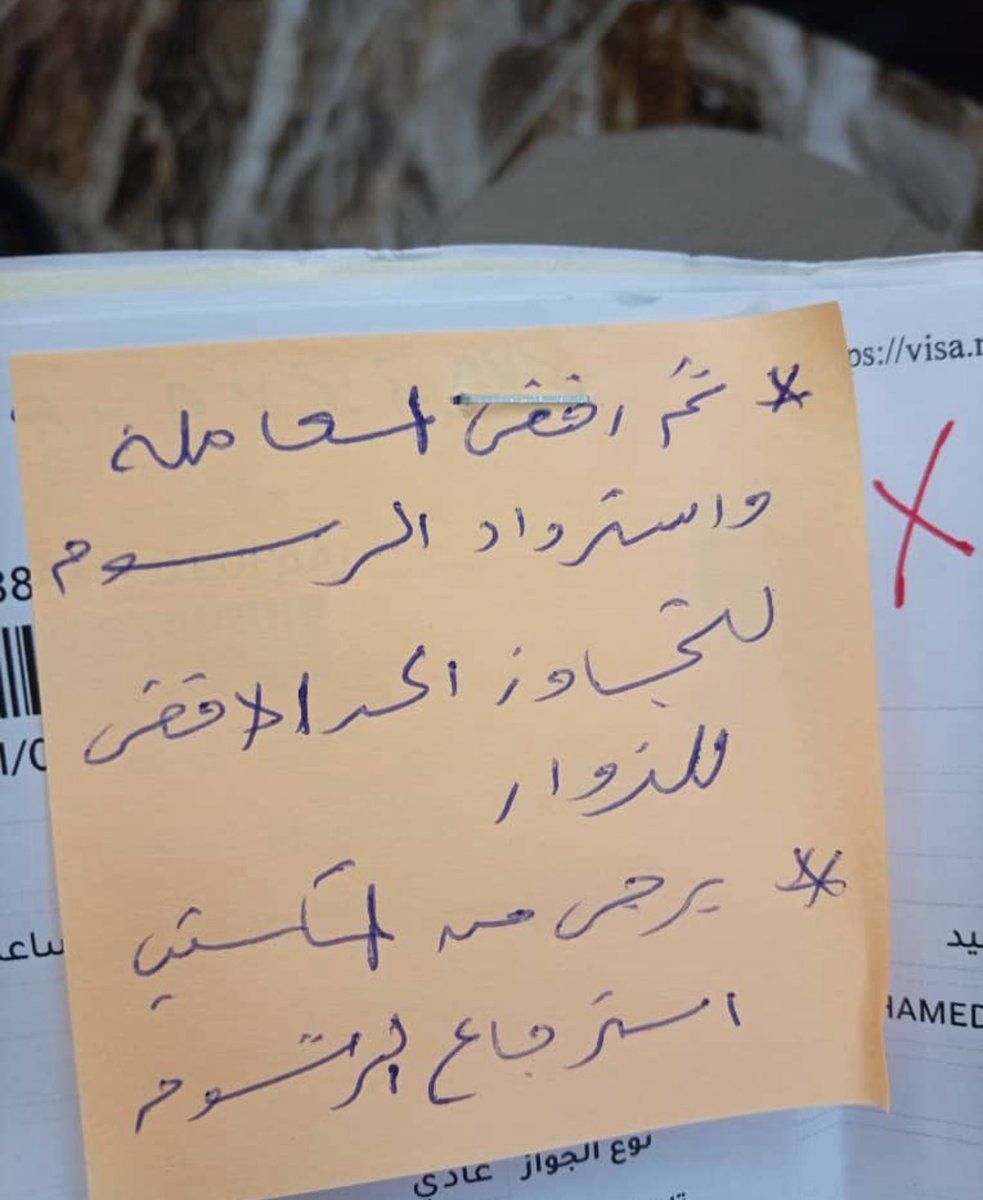 ps://visa.
* تم رفض المعاملة
واسترداد الرسوم
للتجاوز الحد الاقصى
للزوار
* يرجى من
استرجاع الرسوم
38
يد
HAMED
نوع الجواز عادي